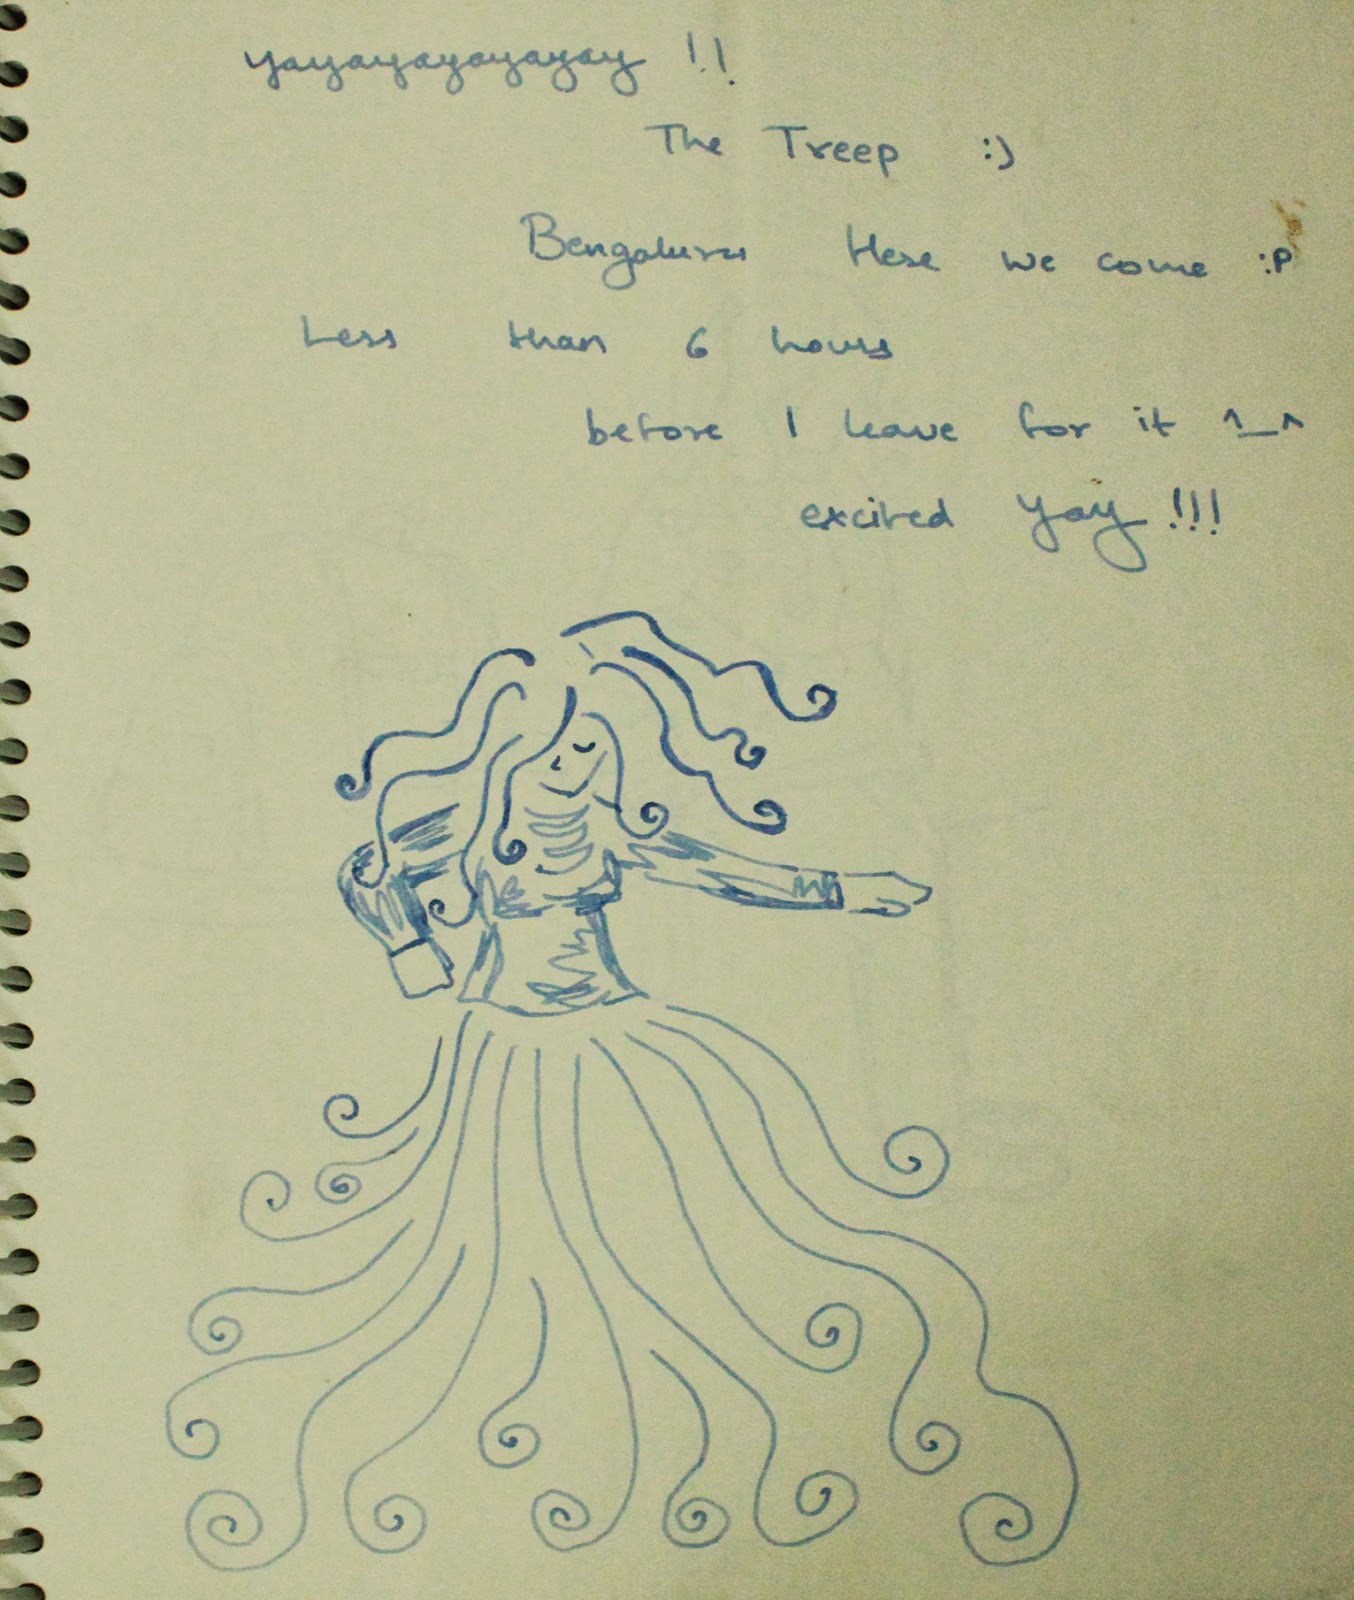 yayayayayayayay !!
The Treep :)
Bengaluru Here we come :P
Less than 6 hours
before I leave for it ^_^
excited yay !!!